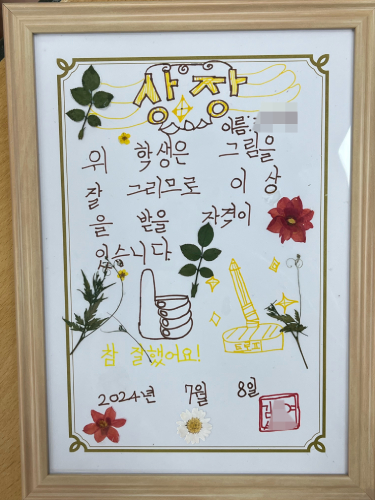 상장
이름:
위 학생은 그림을
잘 그리므로 이 상
을 받을 자격이
있습니다
트로피
참 잘했어요!
2024년 7월 8일